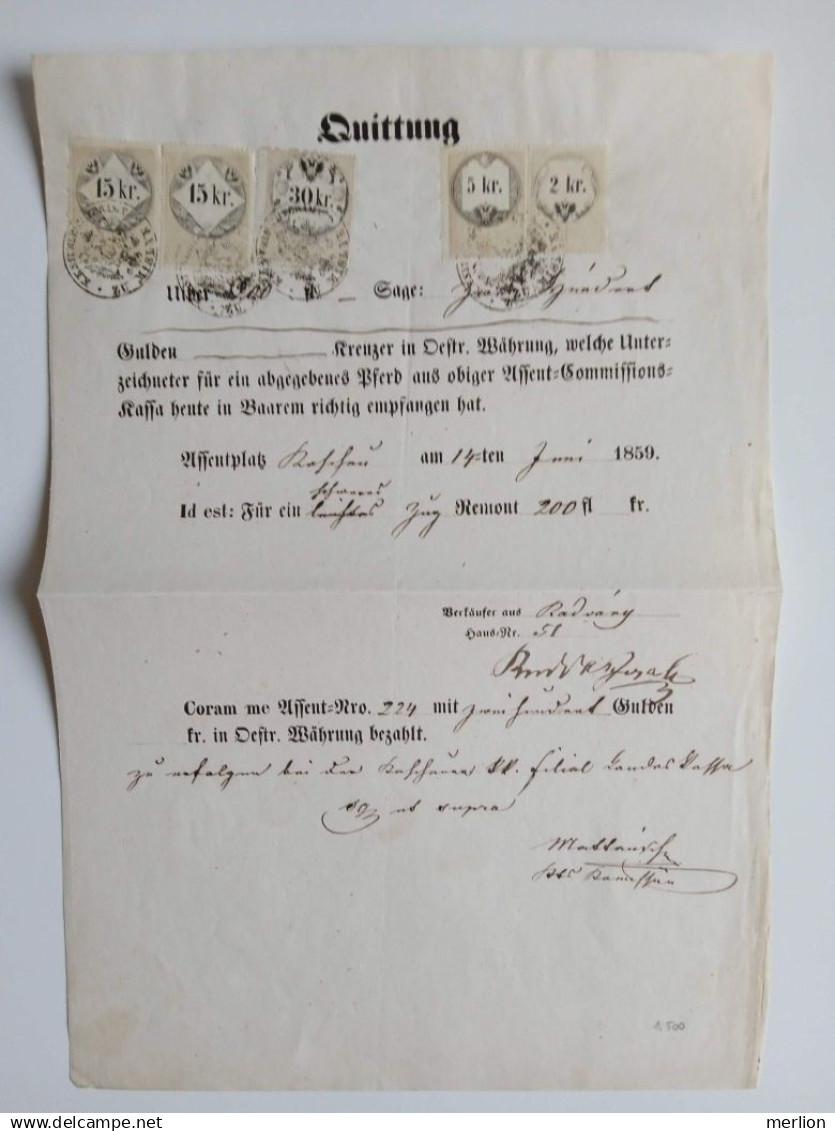 Quittung
15 kr. 15 kr. 30 kr. 5 kr. 2 kr.
Über 200 fl – Sage: Zwei Hundert
Gulden Kreuzer in Oestr. Währung, welche Unter-
zeichneter für ein abgegebenes Pferd aus obiger Assent-Commissions-
Kassa heute in Baarem richtig empfangen hat.
Assentplatz Kaschau am 14-ten Juni 1859.
schweres
Id est: Für ein leichtes Zug Remont 200 fl kr.
Verkäufer aus Radvány
Haus-Nr. 51
Coram me Assent-Nro. 224 mit zweihundert Gulden
kr. in Oestr. Währung bezahlt.
zu erfolgen bei der Kaschauer KK. Filial Landes Kassa
ut supra
1.500
merlion